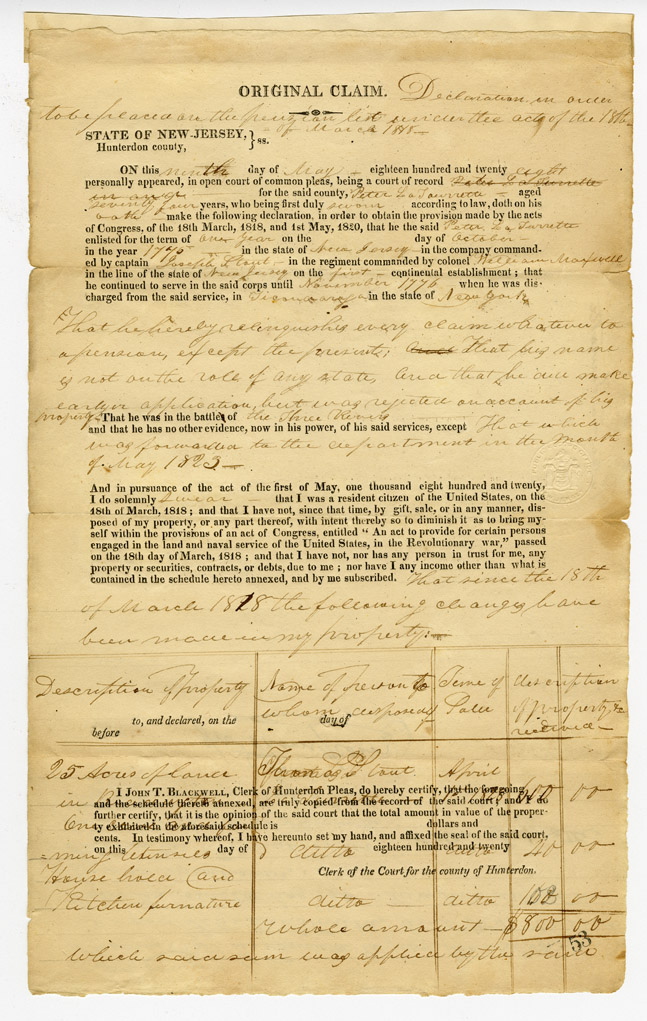 ORIGINAL CLAIM. Declaration in order
to be placed on the pension list under the act of the 18th
of March 1818—
STATE OF NEW-JERSEY,
Hunterdon county, } ss.
ON this ninth day of May eighteen hundred and twenty eight
personally appeared, in open court of common pleas, being a court of record
in and for the said county, Peter La Turrette aged
seventy four years, who being first duly sworn according to law, doth on his
oath make the following declaration, in order to obtain the provision made by the acts
of Congress, of the 18th March, 1818, and 1st May, 1820, that he the said Peter La Turrette
enlisted for the term of one year on the day of October
in the year 1775 in the state of New Jersey in the company command-
ed by captain Joseph Stout in the regiment commanded by colonel William Maxwell
in the line of the state of New Jersey on the first continental establishment; that
he continued to serve in the said corps until November 1776 when he was dis-
charged from the said service, in in the state of New York
That he hereby relinquishes every claim whatever to
a pension, except the present; That his name
is not on the roll of any state, and that he did make
early application, but was rejected on account of his
property That he was in the battle of the Three Rivers
and that he has no other evidence, now in his power, of his said services, except That which
was forwarded to the department in the month
of May 1823—
And in pursuance of the act of the first of May, one thousand eight hundred and twenty,
I do solemnly swear that I was a resident citizen of the United States, on the
18th of March, 1818; and that I have not, since that time, by gift, sale, or in any manner, dis-
posed of my property, or any part thereof, with intent thereby so to diminish it as to bring my-
self within the provisions of an act of Congress, entitled "An act to provide for certain persons
engaged in the land and naval service of the United States, in the Revolutionary war," passed
on the 18th day of March, 1818; and that I have not, nor has any person in trust for me, any
property or securities, contracts, or debts, due to me; nor have I any income other than what is
contained in the schedule hereto annexed, and by me subscribed. That since the 18th
of March 1818 the following changes have
been made in my property:—
Description of property Name of Person to Time of description
whom disposed of Sale of property &c
to, and declared, on the day of received
before
25 Acres of land Thomas Stout April
I JOHN T. BLACKWELL, Clerk of Hunterdon Pleas, do hereby certify, that the foregoing
and the schedule thereto annexed, are truly copied from the record of the said court; and I do
further certify, that it is the opinion of the said court that the total amount in value of the proper-
ty exhibited in the aforesaid schedule is dollars and
cents. In testimony whereof, I have hereunto set my hand, and affixed the seal of the said court,
on this day of eighteen hundred and twenty
ming utensils ditto ditto 40 00
Clerk of the Court for the county of Hunterdon.
House hold and
Kitchen furnature ditto — ditto 00
Whole amount — $800 00
53
which said sum was applied by the said